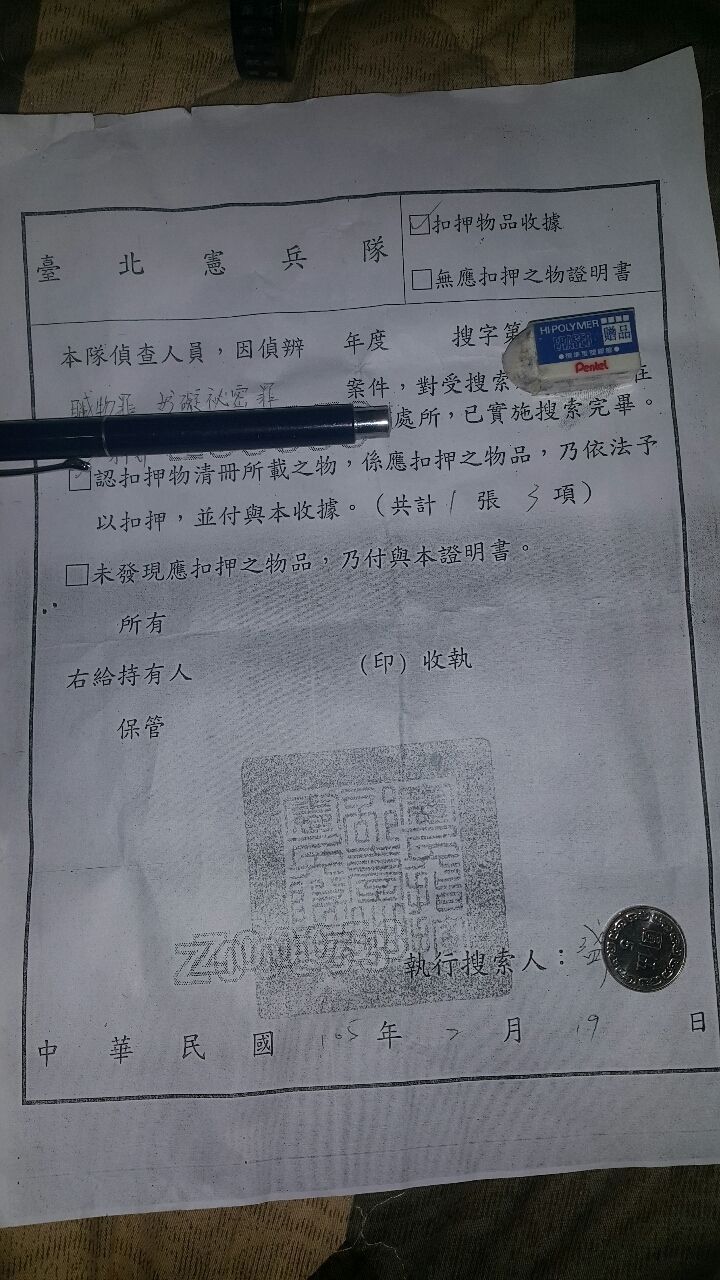 臺北憲兵隊
☑扣押物品收據
□無應扣押之物證明書
本隊偵查人員，因偵辨 年度 搜字第
贓物罪 妨礙祕密罪 案件，對受搜索
處所，已實施搜索完畢。
□認扣押物清冊所載之物，係應扣押之物品，乃依法予
以扣押，並付與本收據。(共計 1 張 3 項)
□未發現應扣押之物品，乃付與本證明書。
所有
右給持有人 (印) 收執
保管
執行搜索人：
中華民國 105 年 2 月 19 日
HI POLYMER
贈品
Pentel